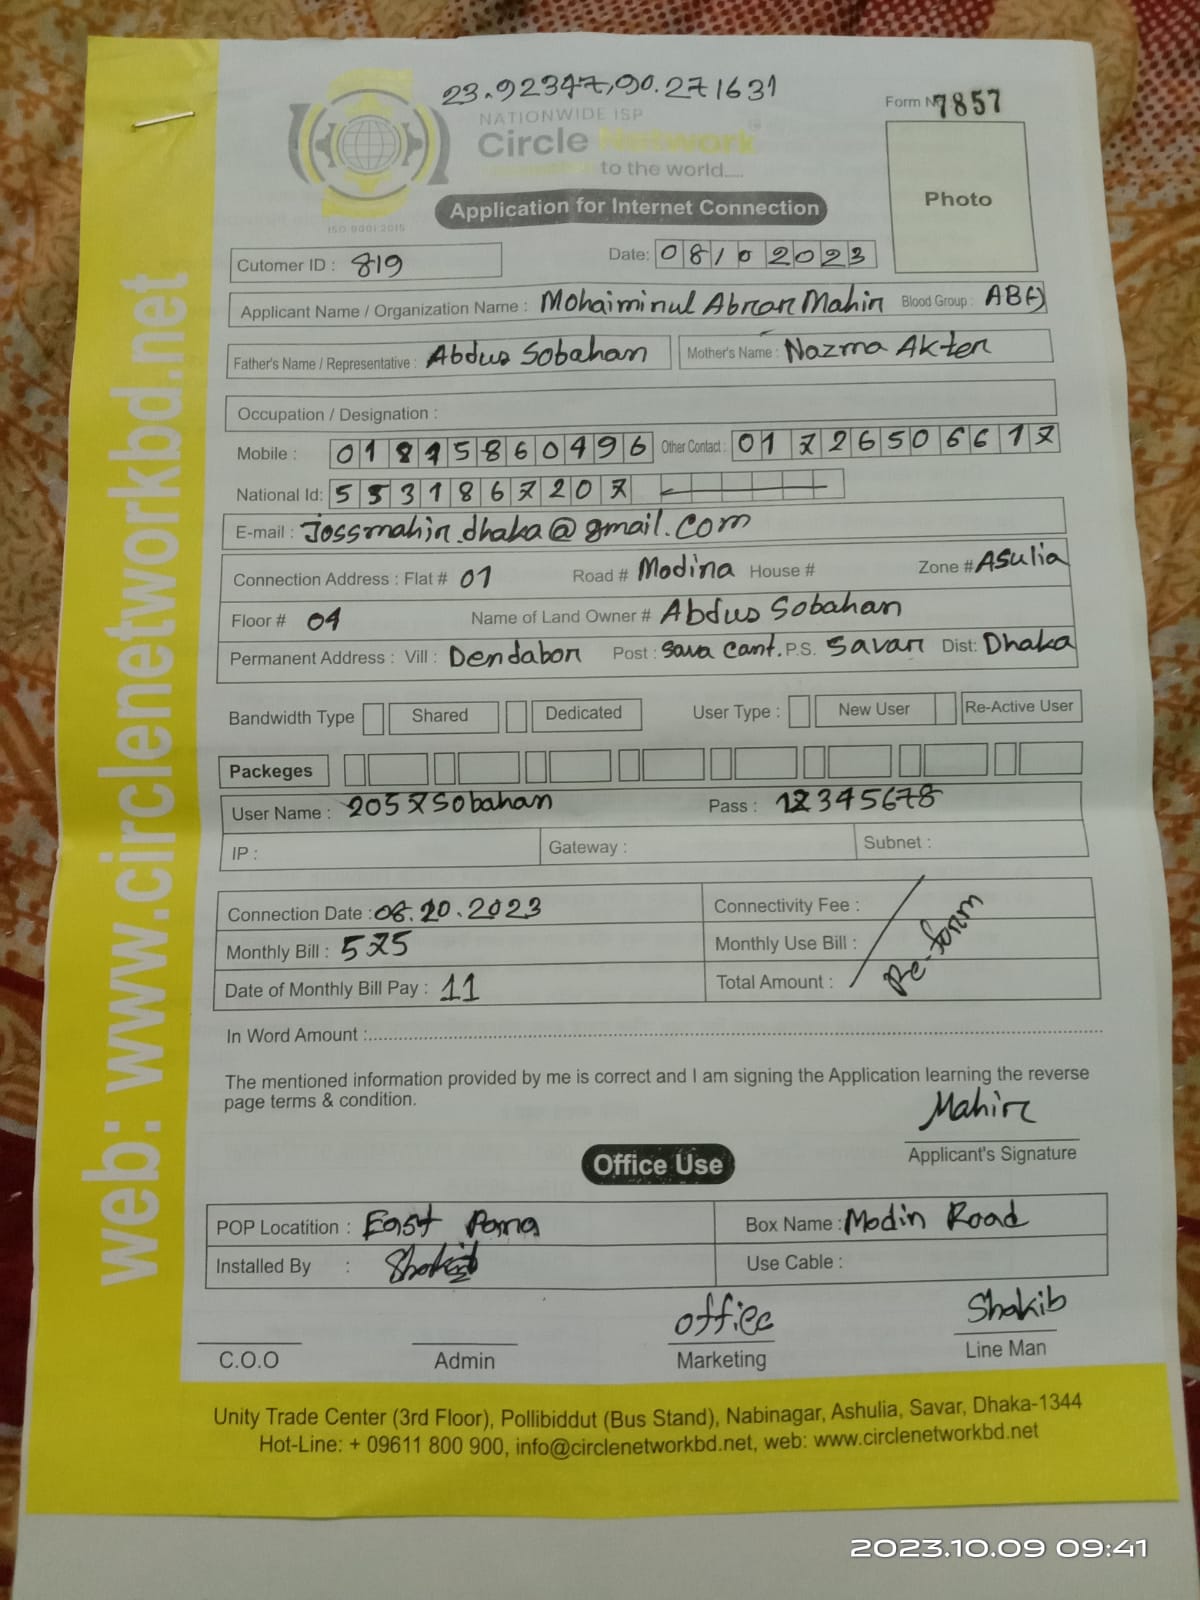 23.92347,90.271631
Form No 7857
NATIONWIDE ISP
Circle Network
to the world.....
Photo
Application for Internet Connection
ISO 9001:2015
Cutomer ID : 819 Date: 08/02023
Applicant Name / Organization Name : Mohaiminul Abrar Mahin Blood Group : AB(-)
Father's Name / Representative : Abdus Sobahan Mother's Name : Nazma Akter
Occupation / Designation :
Mobile : 01815860496 Other Contact : 01726506617
National Id: 5531867207
E-mail : Jossmahin.dhaka@gmail.com
Connection Address : Flat # 01 Road # Modina House # Zone # Asulia
Floor # 04 Name of Land Owner # Abdus Sobahan
Permanent Address : Vill : Dendabor Post : Sava Cant. P.S. Savar Dist: Dhaka
Bandwidth Type Shared Dedicated User Type : New User Re-Active User
Packeges
User Name : 2057Sobahan Pass : 12345678
IP : Gateway : Subnet :
Connection Date : 08.10.2023 Connectivity Fee :
Monthly Bill : 575 Monthly Use Bill : Re-form
Date of Monthly Bill Pay : 11 Total Amount :
In Word Amount :
The mentioned information provided by me is correct and I am signing the Application learning the reverse
page terms & condition.
Mahin
Applicant's Signature
Office Use
POP Locatition : East Para Box Name : Modin Road
Installed By : Shakib Use Cable :
office Shakib
C.O.O Admin Marketing Line Man
Unity Trade Center (3rd Floor), Pollibiddut (Bus Stand), Nabinagar, Ashulia, Savar, Dhaka-1344
Hot-Line: + 09611 800 900, info@circlenetworkbd.net, web: www.circlenetworkbd.net
web: www.circlenetworkbd.net
2023.10.09 09:41